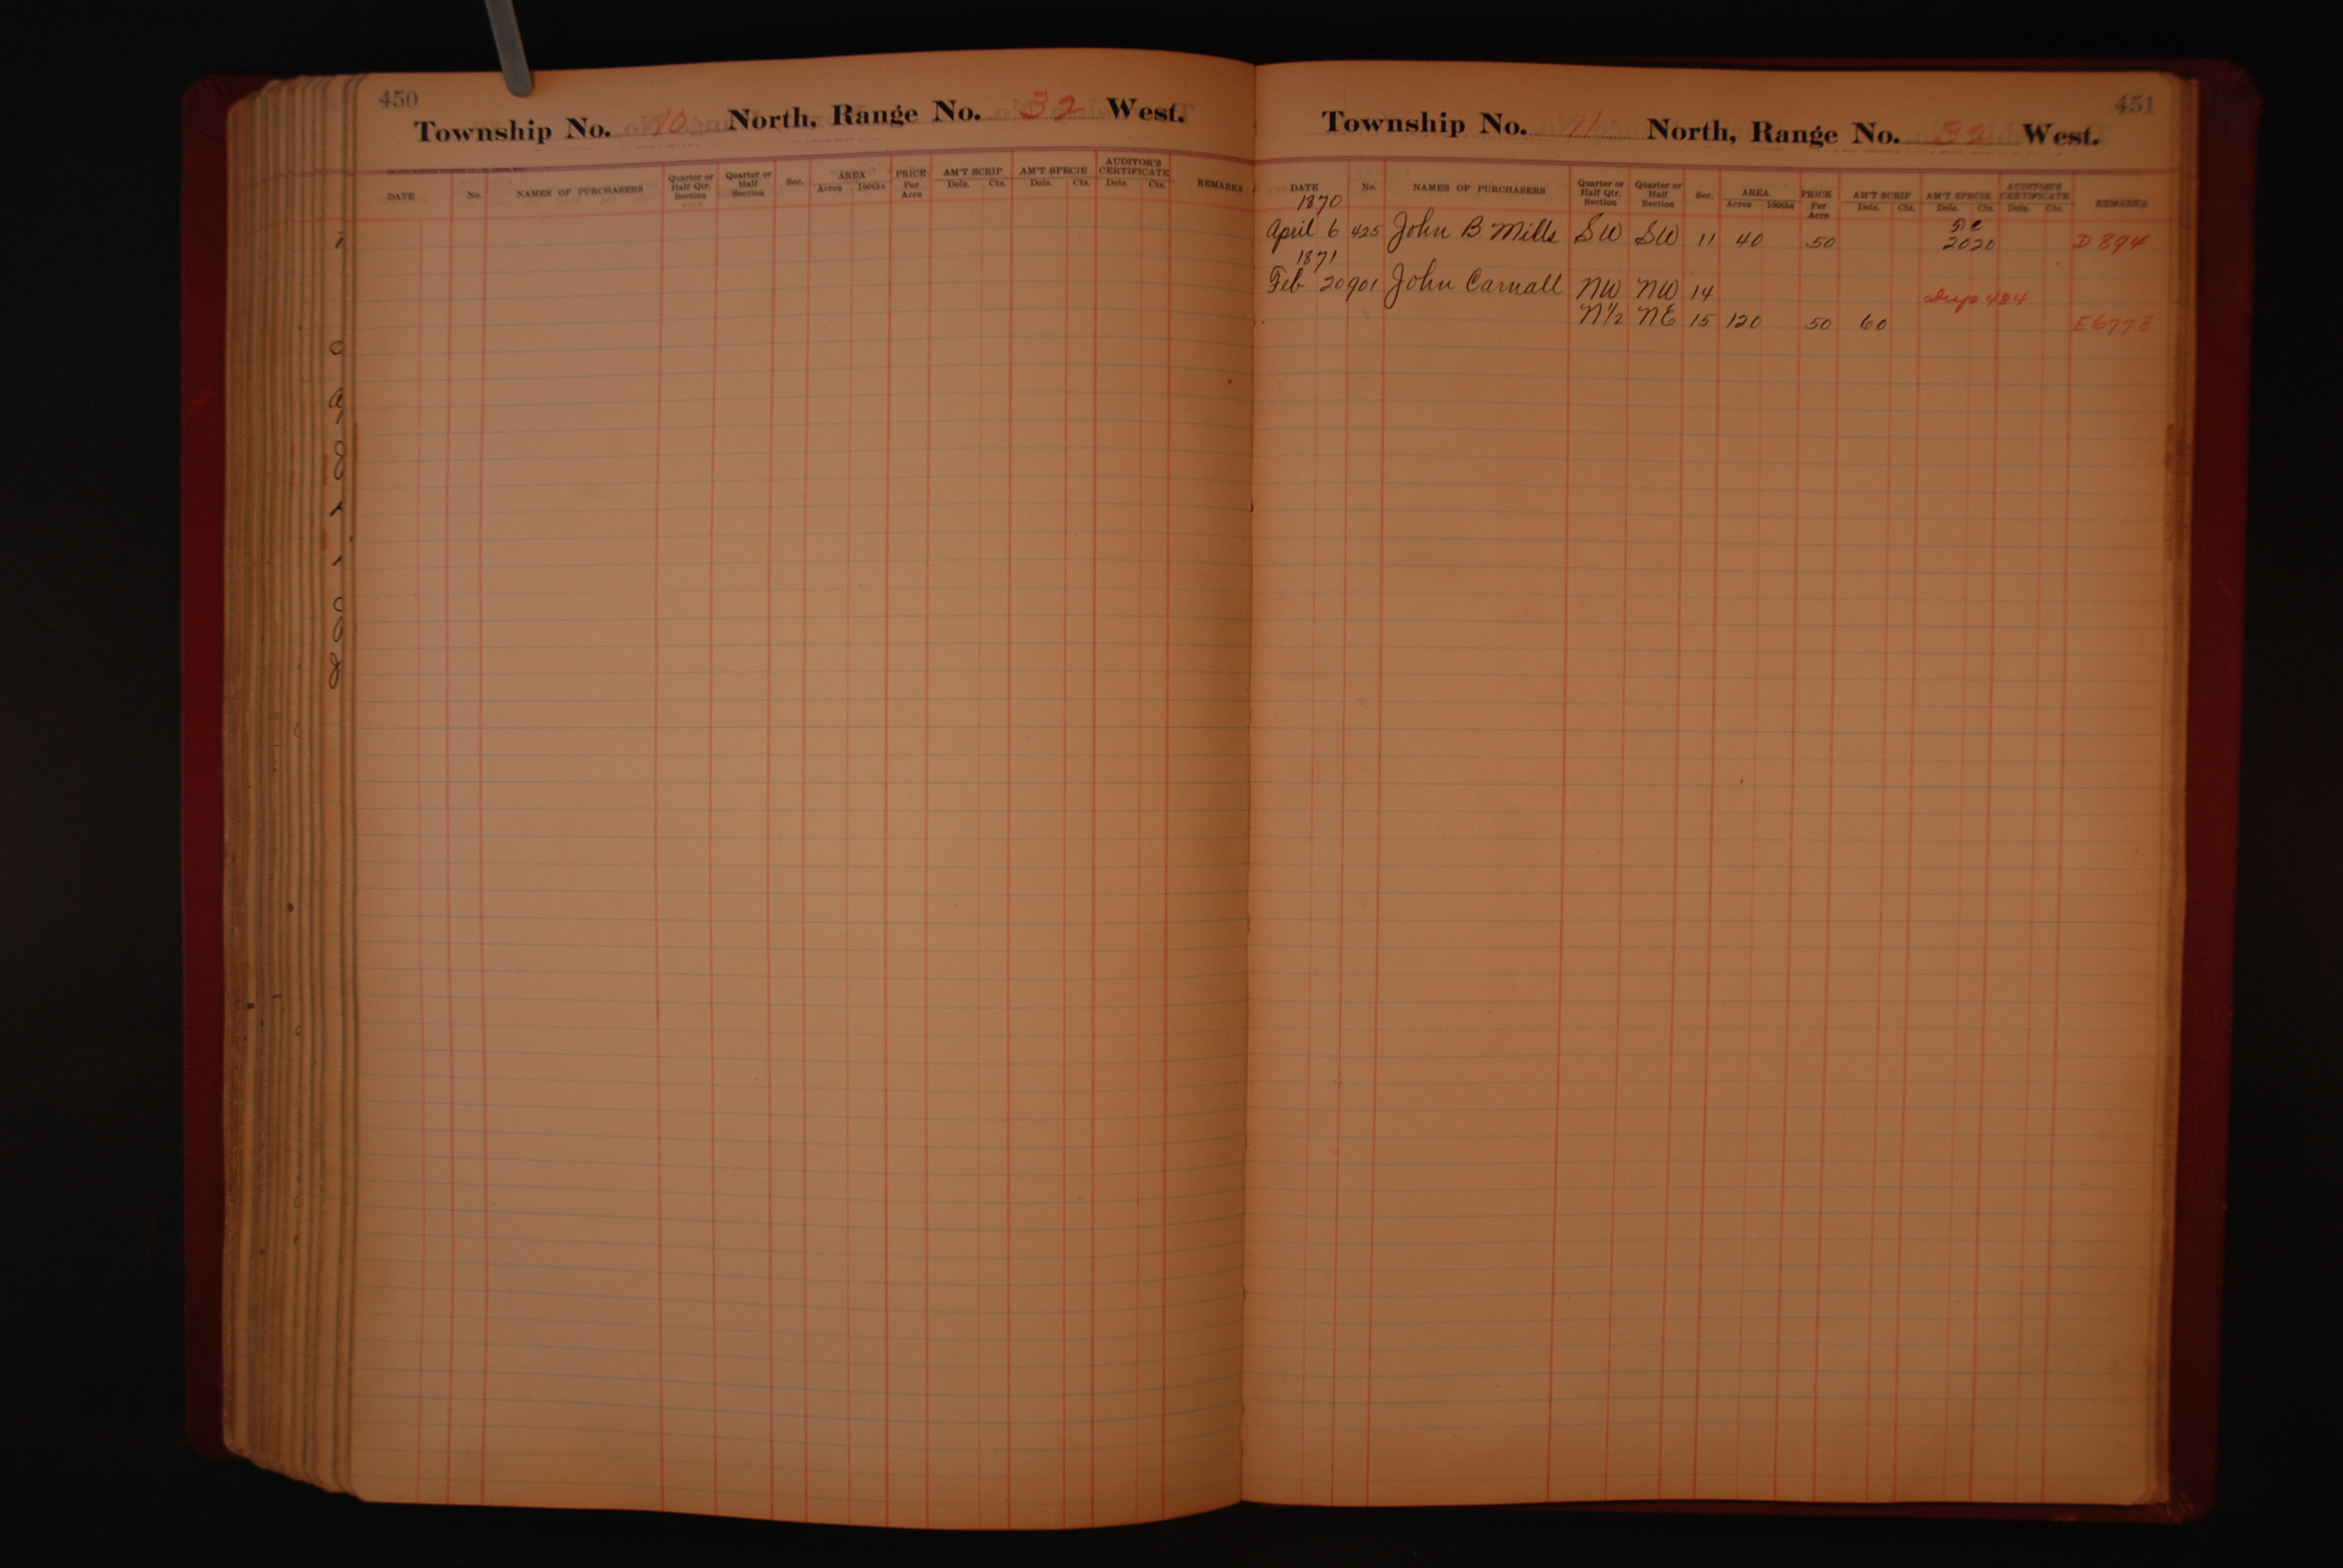 450
Township No. 10 North, Range No. 32 West.
DATE No. NAMES OF PURCHASERS Quarter or Half Qr. Section Quarter or Half Section Sec. AREA Acres 100ths PRICE Per Acre AM'T SCRIP Dols. Cts. AM'T SPECIE Dols. Cts. AUDITOR'S CERTIFICATE Dols. Cts. REMARKS
451
Township No. 11 North, Range No. 32 West.
DATE No. NAMES OF PURCHASERS Quarter or Half Qr. Section Quarter or Half Section Sec. AREA Acres 100ths PRICE Per Acre AM'T SCRIP Dols. Cts. AM'T SPECIE Dols. Cts. AUDITOR'S CERTIFICATE Dols. Cts. REMARKS
1870
April 6 425 John B. Mills SW SW 11 40 50 2020 D 894
1871
Feb 20 901 John Carnall NW NW 14 Dup 484
N½ NE 15 120 50 60 E6778